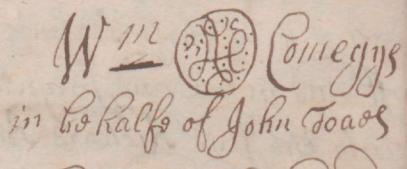 Wm Comegys
in behalfe of John Toaes